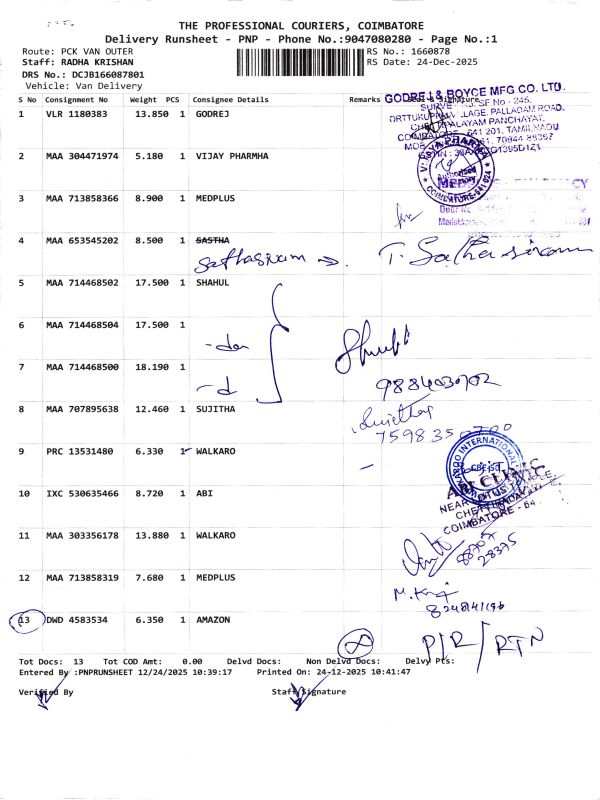 THE PROFESSIONAL COURIERS, COIMBATORE
Delivery Runsheet - PNP - Phone No.:9047080280 - Page No.:1
Route: PCK VAN OUTER
RS No.: 1660878
Staff: RADHA KRISHAN
RS Date: 24-Dec-2025
DRS No.: DCJB166087801
Vehicle: Van Delivery
S No Consignment No Weight PCS Consignee Details Remarks Signature
GODREJ & BOYCE MFG CO. LTD.
1 VLR 1180383 13.850 1 GODREJ
2 MAA 304471974 5.180 1 VIJAY PHARMHA
3 MAA 713858366 8.900 1 MEDPLUS
4 MAA 653545202 8.500 1 SASTHA
Sathasivam T. Sathasivam
5 MAA 714468502 17.500 1 SHAHUL
6 MAA 714468504 17.500 1
-do
7 MAA 714468500 18.190 1
-d
8 MAA 707895638 12.460 1 SUJITHA
Sujitha
9 PRC 13531480 6.330 1 WALKARO
10 IXC 530635466 8.720 1 ABI
COIMBATORE - 64
11 MAA 303356178 13.880 1 WALKARO
12 MAA 713858319 7.680 1 MEDPLUS
13 DWD 4583534 6.350 1 AMAZON
P/R/RTN
Tot Docs: 13 Tot COD Amt: 0.00 Delvd Docs: Non Delvd Docs: Delvy Pts:
Entered By :PNPRUNSHEET 12/24/2025 10:39:17 Printed On: 24-12-2025 10:41:47
Verified By Staff Signature